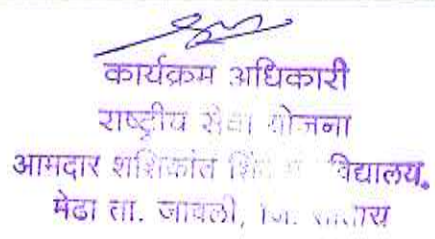 कार्यक्रम अधिकारी
राष्ट्रीय सेवा योजना
आमदार शशिकांत विद्यालय,
मेढा ता. जावली, जि. सातारा